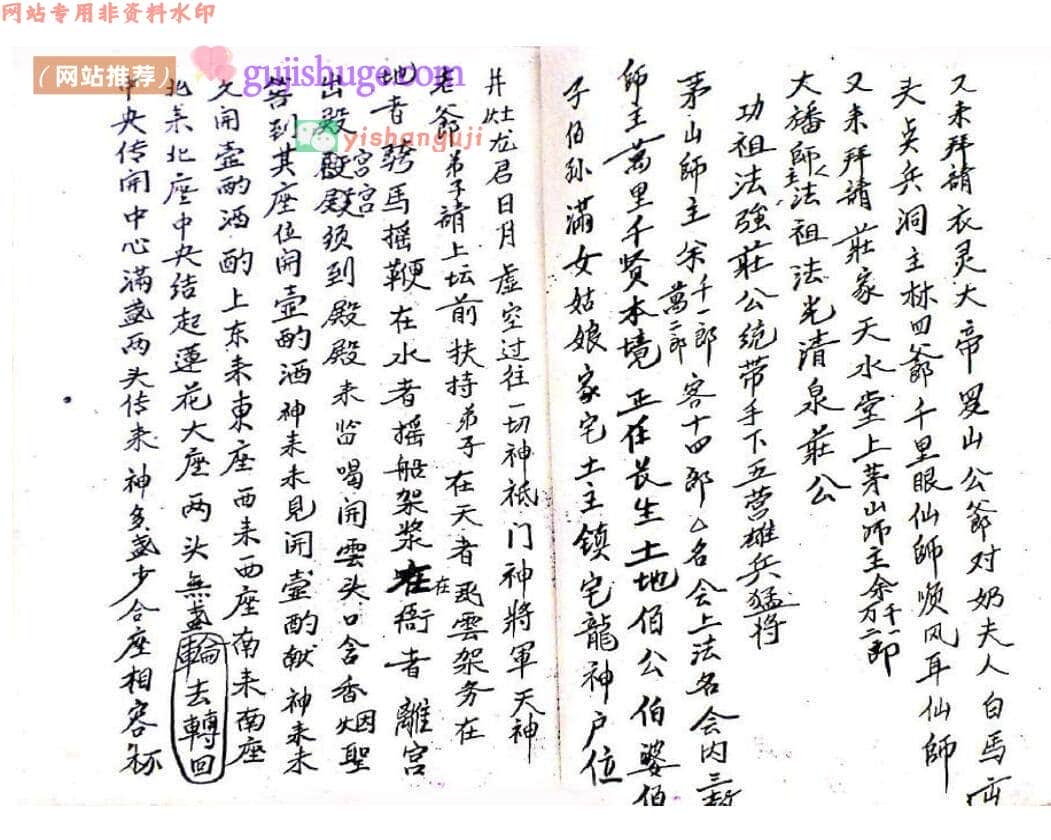 网站专用非资料水印
（网站推荐）
gujishuge.com
yishanguji
又来拜請衣灵大帝罗山公爺对奶夫人白馬
夫兵洞主林四爺千里眼仙師顺风耳仙師
又来拜請莊家天水堂上茅山师主余千一万二郎
大師主法祖法光清泉莊公
功祖法強莊公统带手下五营雄兵猛将
茅山師主余千一郎萬二郎客十四郎名会上法名会内三
師主萬里千贤本境正任长生土地伯公伯婆伯
子伯孙滿女姑娘家宅土主鎮宅龍神户位
井灶龙君日月虚空过往一切神祗门神將軍天神
老爺弟子請上坛前扶持弟子在天者雲架务在
地者骑馬摇鞭在水者摇船架浆在衙者離宫
出殿宫宫殿须到殿殿来监喝開雲头口含香烟聖
筶到其座位開壶酌酒神来未見開壶酌献神来未
又開壶酌酒酌上东来東座西来西座南来南座
北来北座中央结起蓮花大座两头無盏輪去轉回
中央传開中心滿盏两头传来神多盏少合座相容杯